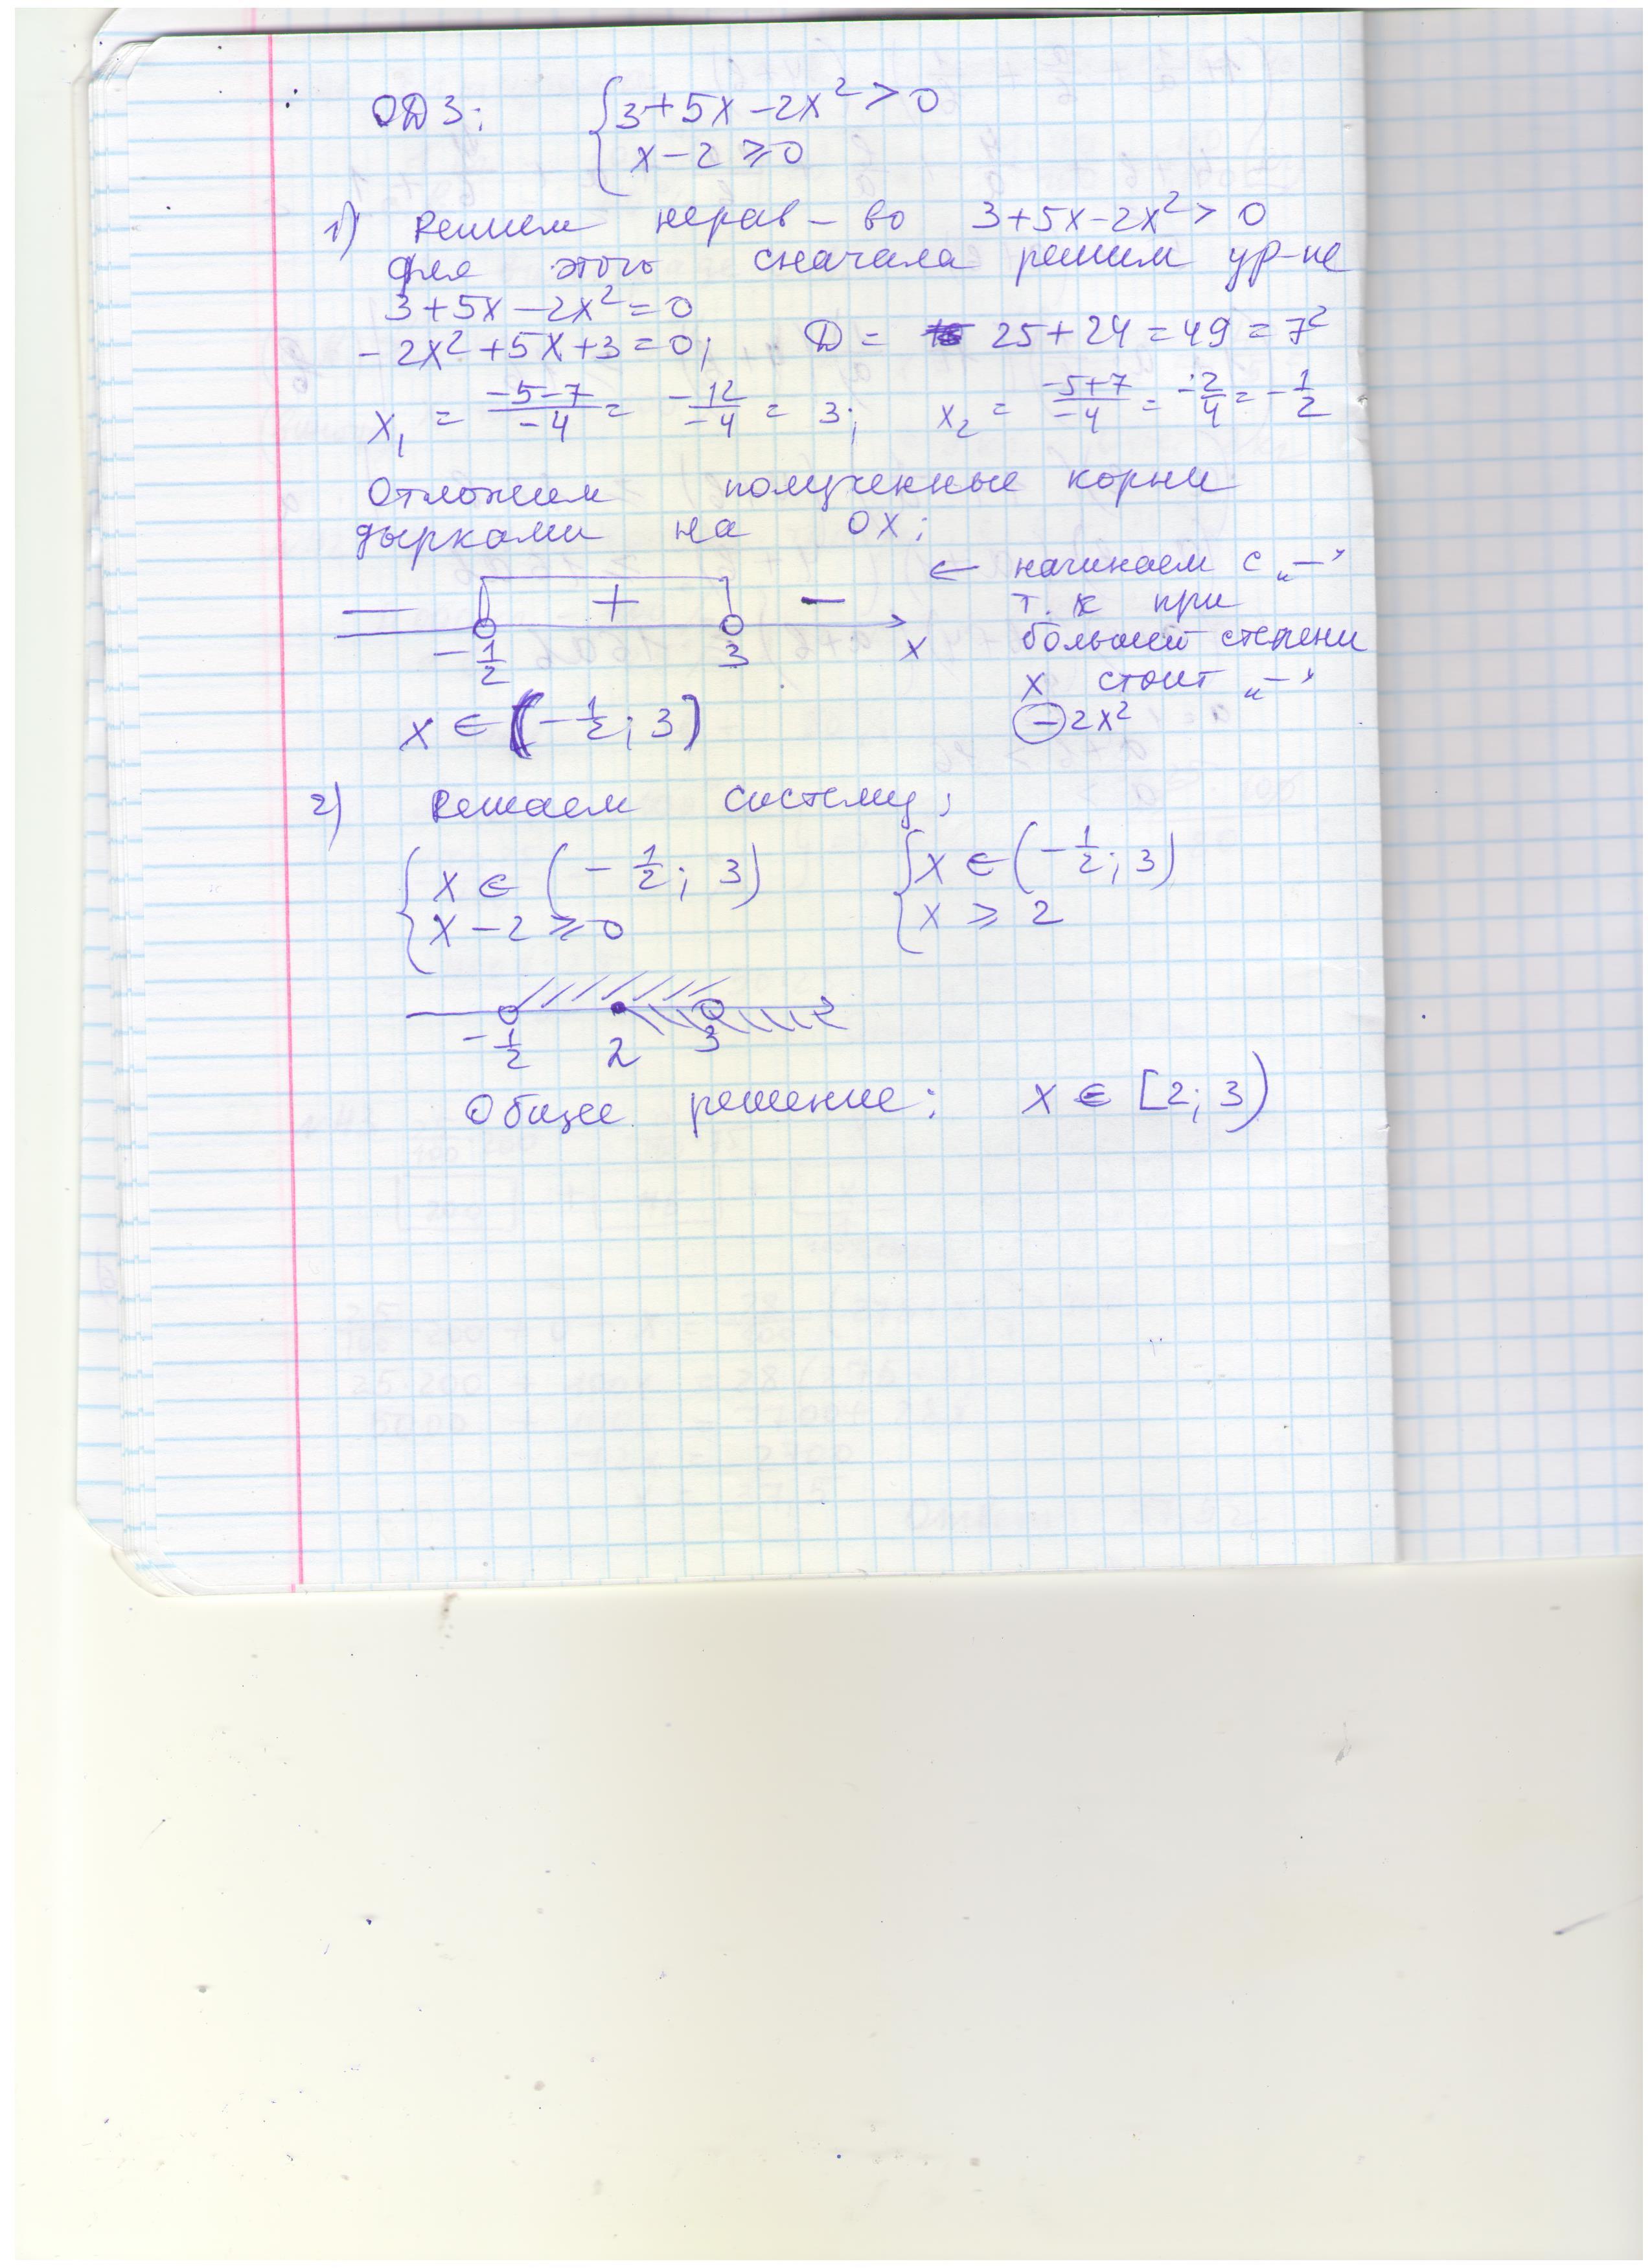 ОДЗ: { 3+5x-2x² > 0
x-2 ⩾ 0
1) Решим нерав-во 3+5x-2x² > 0
для этого сначала решим ур-ие
3+5x-2x² = 0
-2x²+5x+3=0; D = 25+24=49=7²
x₁ = (-5-7)/(-4) = -12/-4 = 3; x₂ = (-5+7)/(-4) = -2/4 = -1/2
Отложим полученные корни
дырками на OX:
← начинаем с „—”
— + —
т.к при
-1/2 3 x
большей степени
x стоит „—”
-2x²
x ∈ (-1/2; 3)
2) Решаем систему:
{ x ∈ (-1/2; 3) { x ∈ (-1/2; 3)
x-2 ⩾ 0 x ⩾ 2
-1/2 2 3
Общее решение: x ∈ [2; 3)